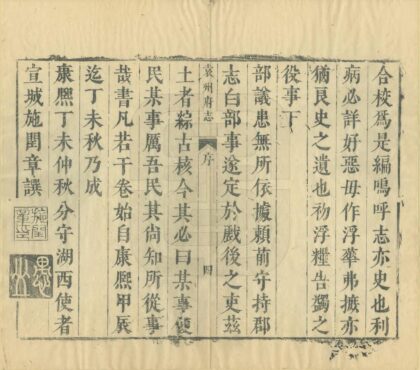 合校爲是編嗚呼志亦史也利
病必詳好惡毋作浮華弗摭亦
猶良史之遺也初浮糧告蠲之
役事下
部議患無所依據賴前守持郡
志白部事遂定於戲後之吏茲
袁州府志
序
四
土者綜古核今其必曰某事便
民某事厲吾民其尚知所從事
哉書凡若干卷始自康熈甲辰
迄丁未秋乃成
康熈丁未仲秋分守湖西使者
宣城施閏章譔
施閏章印
愚山